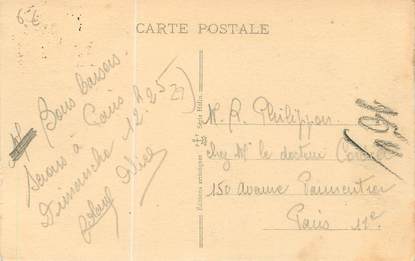 6€
CARTE POSTALE
Bons baisers.
Serons à Paris
Dimanche 12
Alice
Editions artistiques
Série Hélio.
M. R. Philippon
chez Mr le docteur
150 avenue Parmentier
Paris 11e